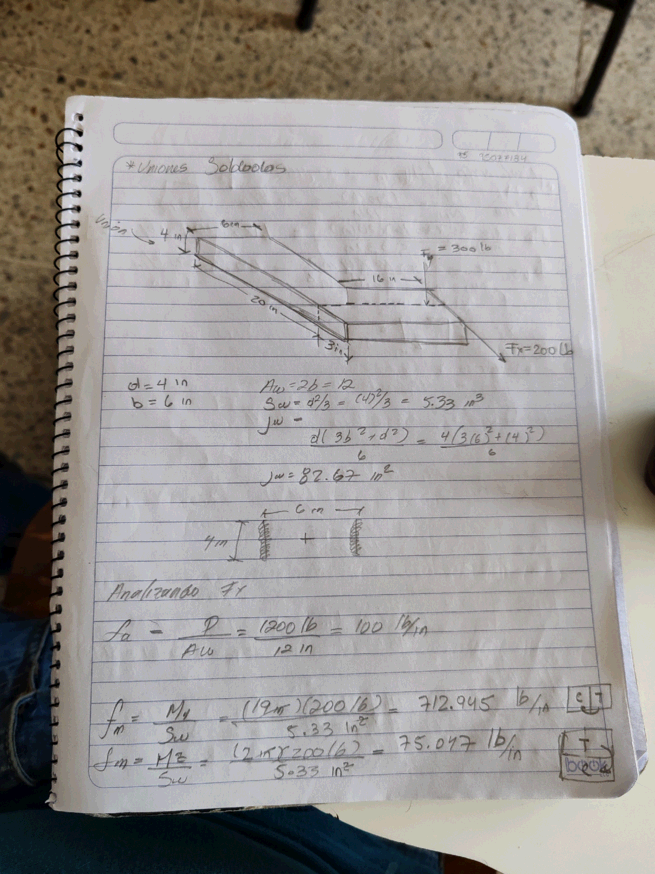 *Uniones Soldadas
Unión
6 in
4 in
Fy = 300 lb
16 in
20 in
3 in
Fx=200 lb
d = 4 in
b = 6 in
Aw = 2b = 12
Sw = d²/3 = (4)²/3 = 5.33 in³
Jw =
d(3b²+d²)/6 = 4(3(6)²+(4)²)/6
Jw = 82.67 in²
6 in
4 in
+
Analizando Fx
fa = P/Aw = 1200 lb/12 in = 100 lb/in
fm = My/Sw = (19 in)(200 lb)/5.33 in² = 712.945 lb/in C T
fm = Mz/Sw = (2 in)(200 lb)/5.33 in² = 75.047 lb/in T
book